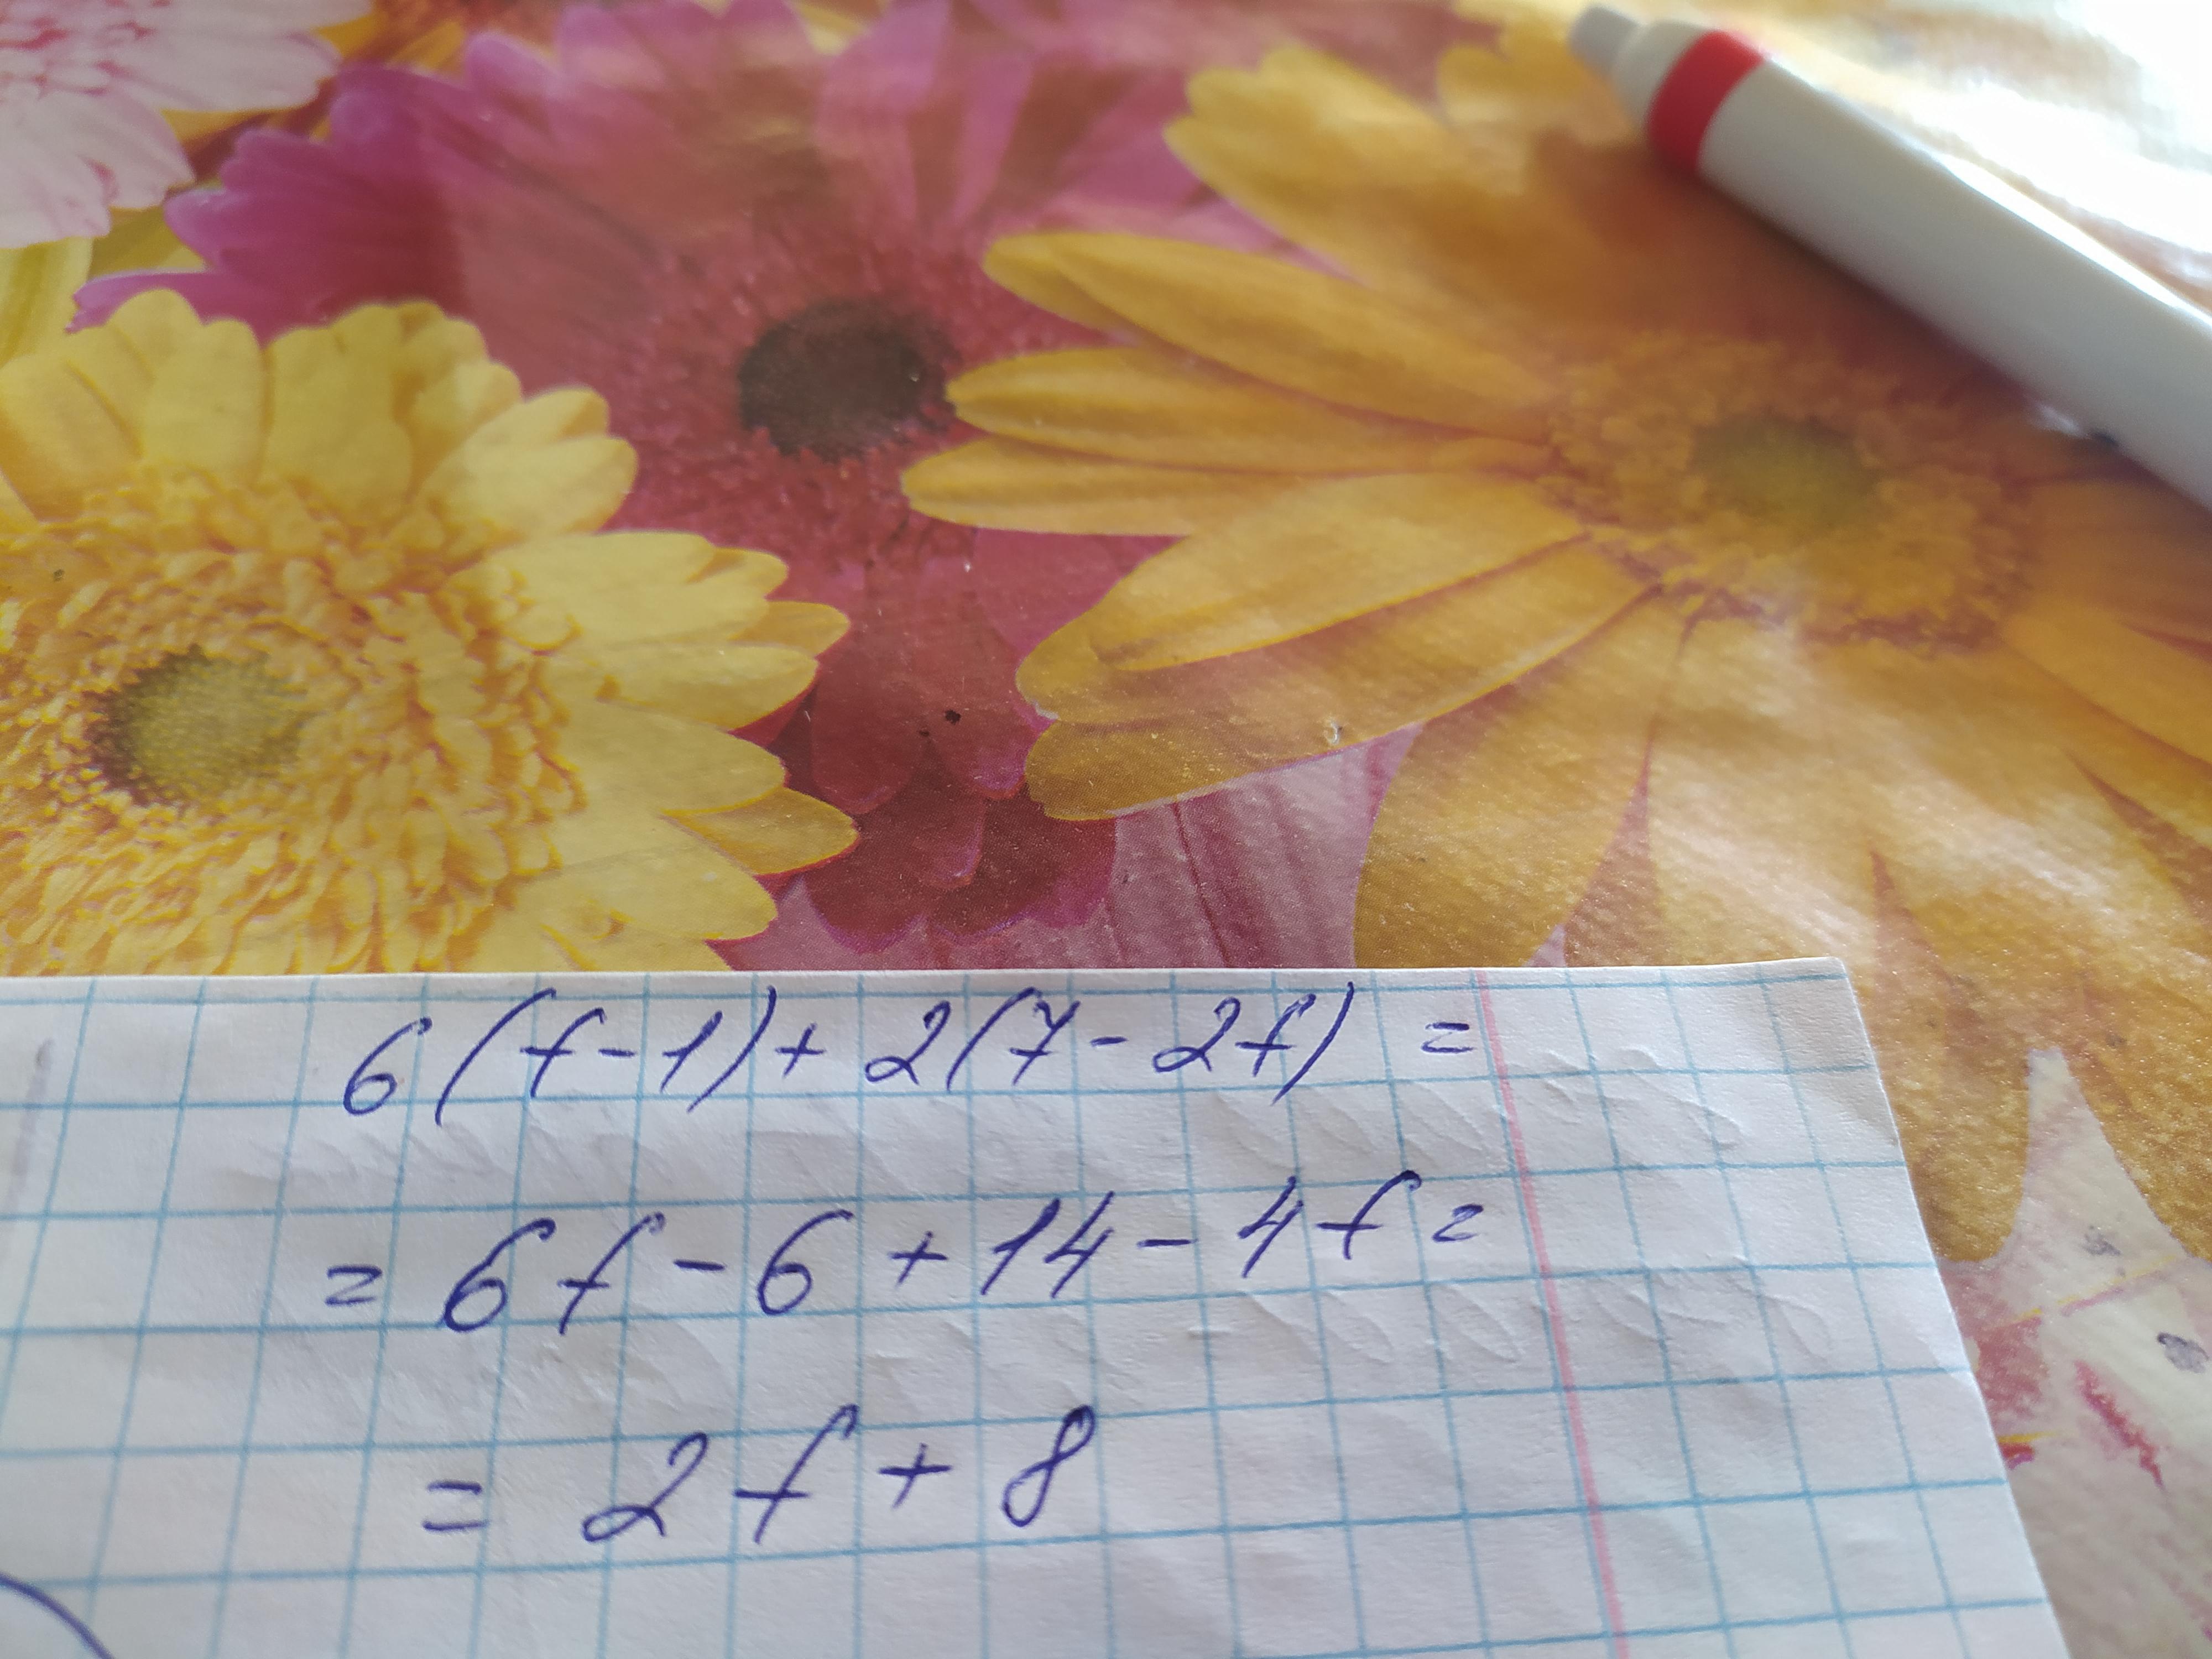 6(f-1)+2(7-2f)=
=6f-6+14-4f=
=2f+8